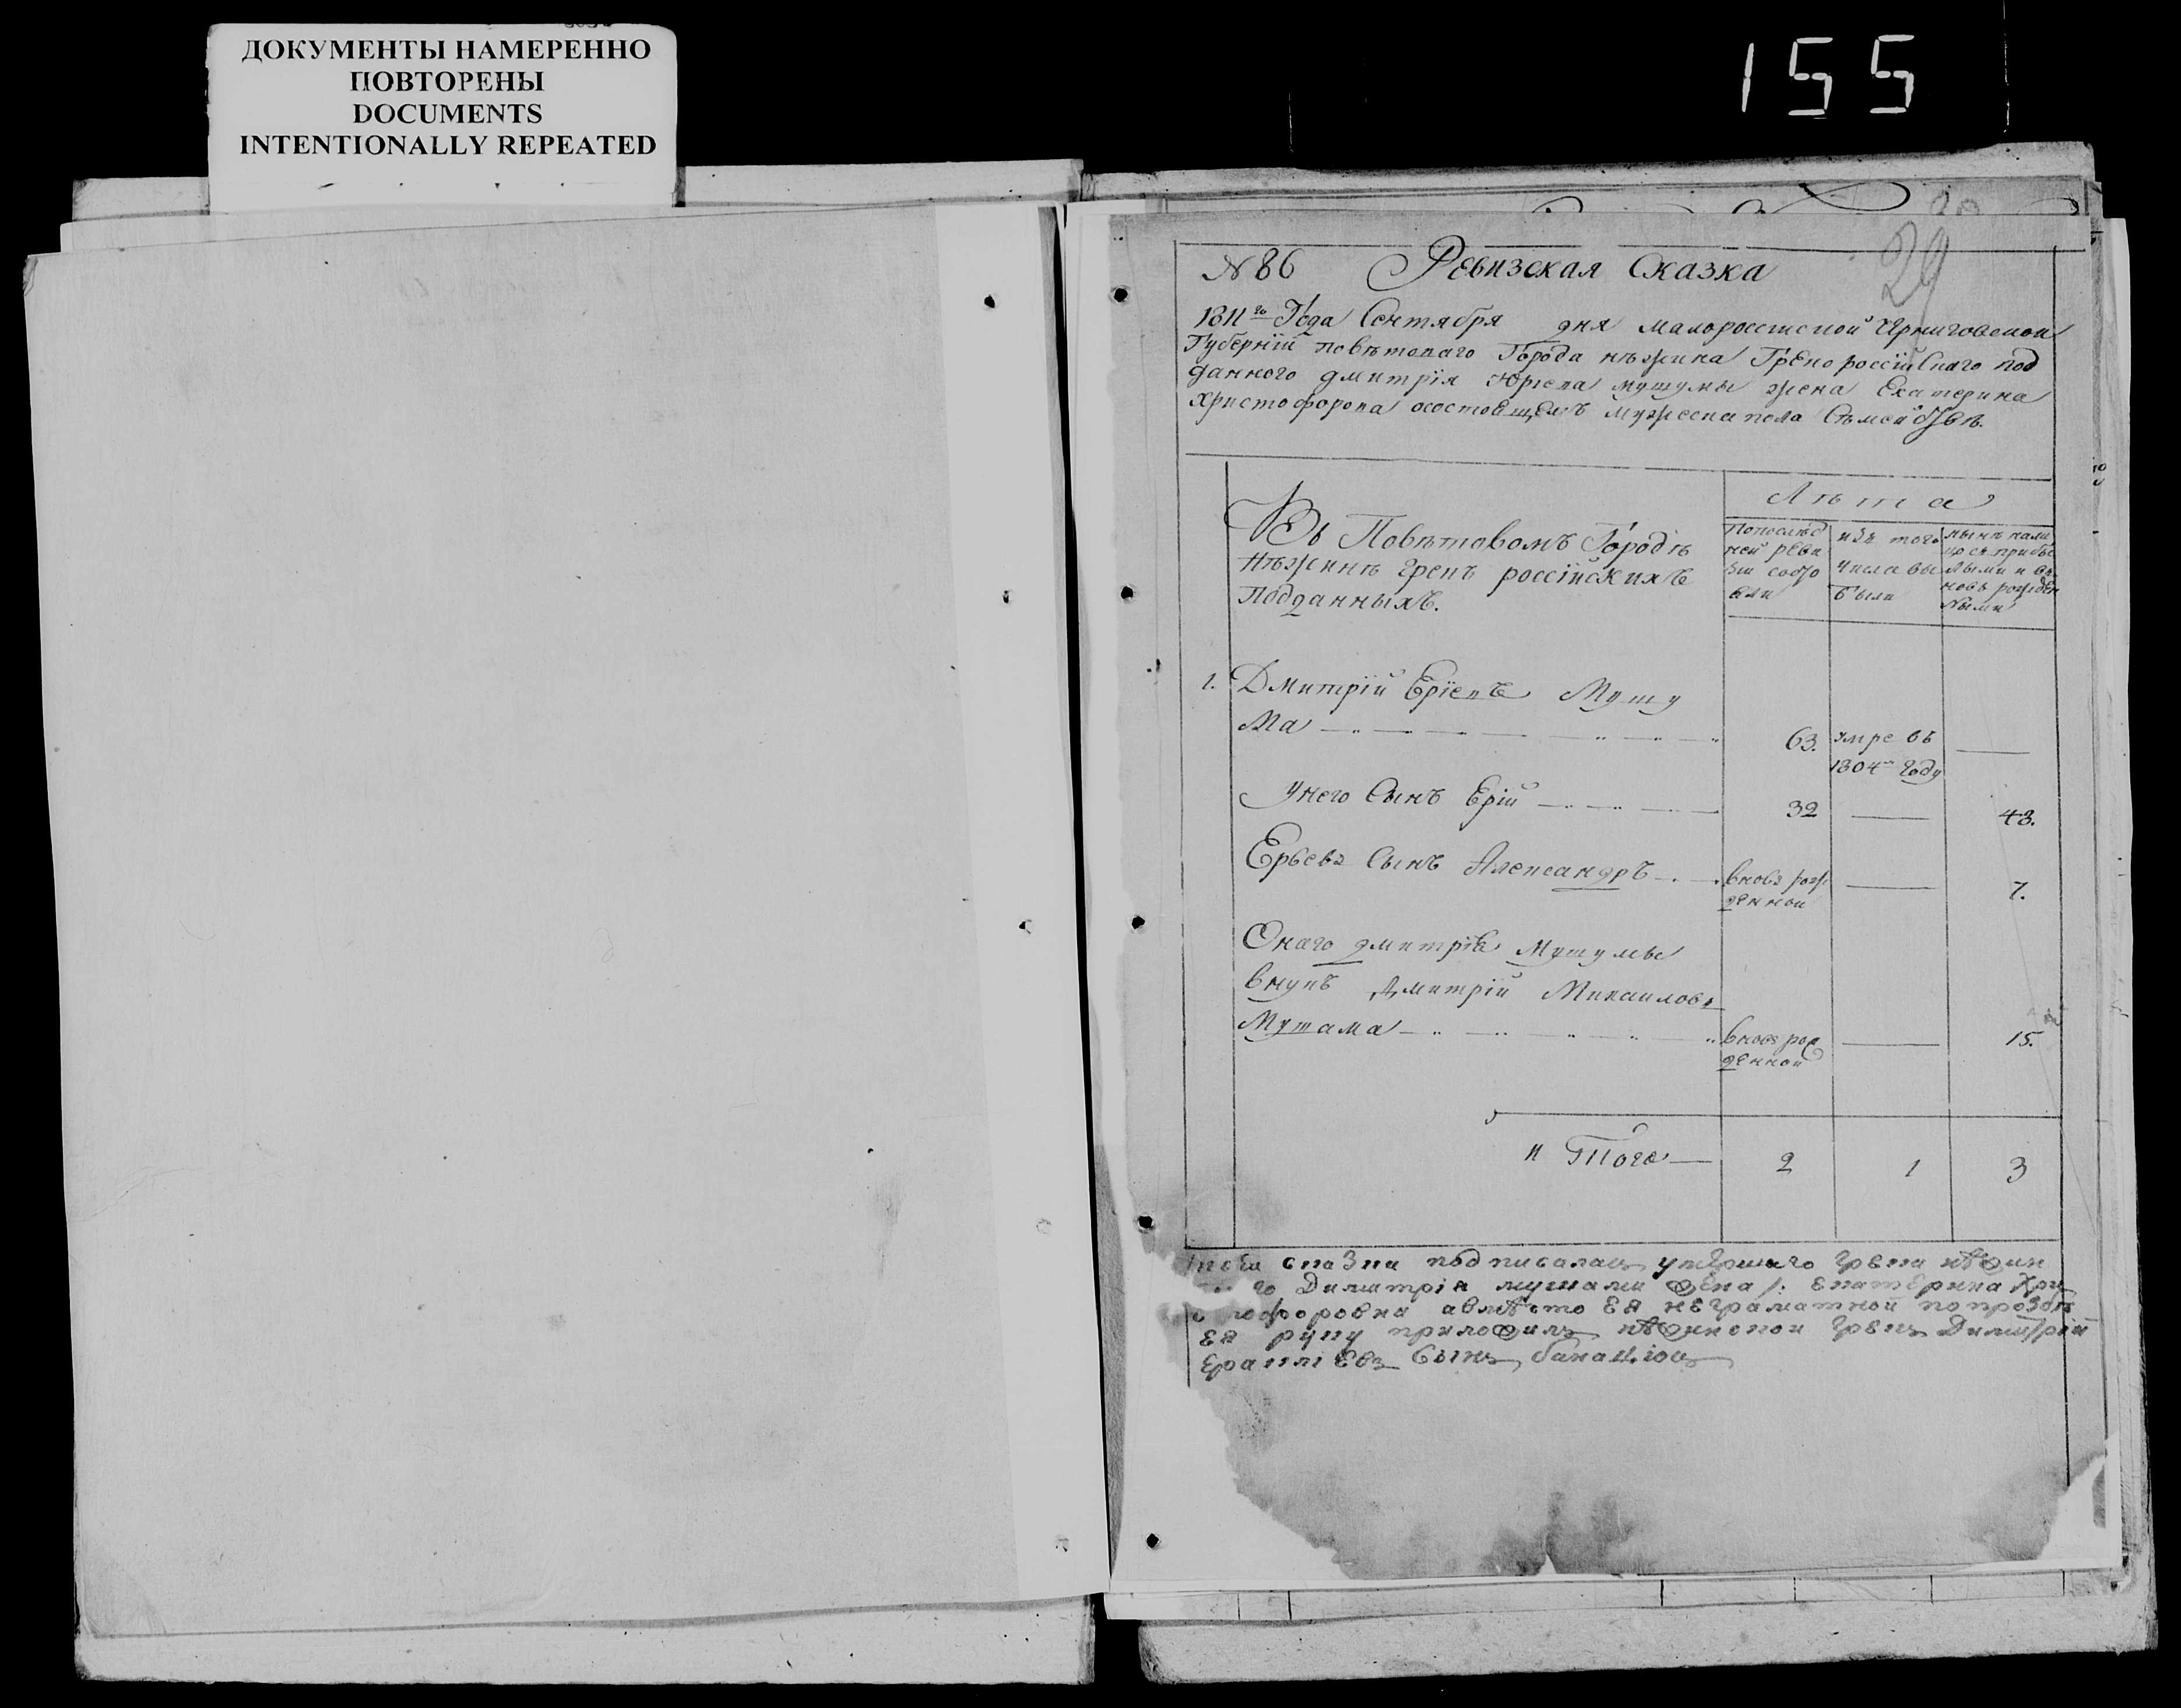 ДОКУМЕНТЫ НАМЕРЕННО
ПОВТОРЕНЫ
DOCUMENTS
INTENTIONALLY REPEATED
155
29
N 86 Ревизская Сказка
1811го Года Сентября дня малороссиской Черниговской
Губернїи повѣтоваго Города нѣжина Грекороссїйскаго под
данного дмитрїя Юрїева мутумы жена Екатерина
христофорова осостоящемъ мужеска пола Сѣмействѣ.
Въ Повѣтовомъ Городѣ
Нѣжинѣ грекъ россїискихъ
Подданныхъ.
Лѣта
Попослѣд
ней реви
зїи состо
яли
изъ того
числа вы
были
нынѣ нали
цо съ прибы
лыми и вь
новь рожден
ными
1. Дмитрїй Ерїевъ Муту
ма 63. умре въ
1804м году
Унего Сынъ Ерїй 32 43.
Ерьевъ Сынъ Александръ вновь рож
денной 7.
Онаго дмитрїя Мутумы
внукъ Дмитрїй Михаиловъ
Мутама вновь рож
денной 15.
и Того 2 1 3
сказки подписалась умершаго грека нѣжин
го Димитрія мутами жена Екатерина Хри
тофоровна авмѣсто ея неграматной попрозбѣ
ея руку приложилъ нѣжинской грекъ Димитрїй
сынъ